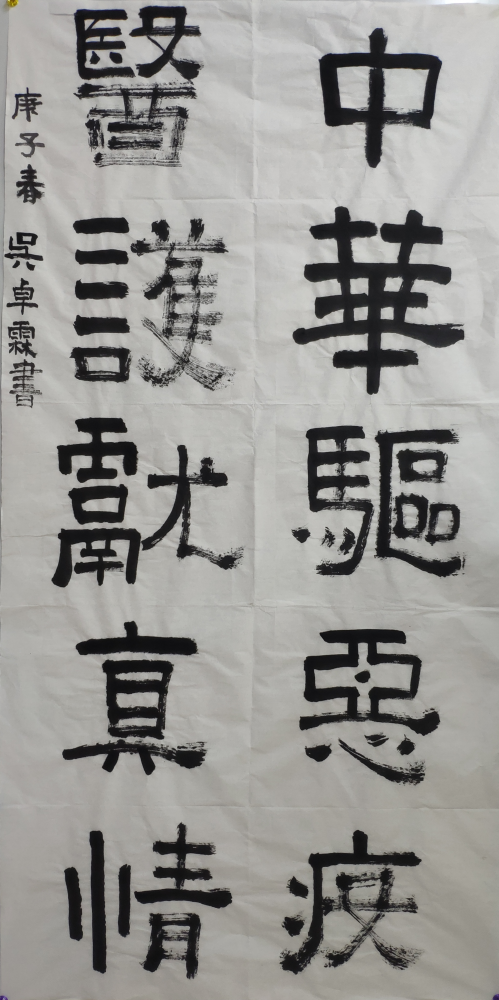 中華驅惡疫
醫護獻真情
庚子春 吳卓霖書